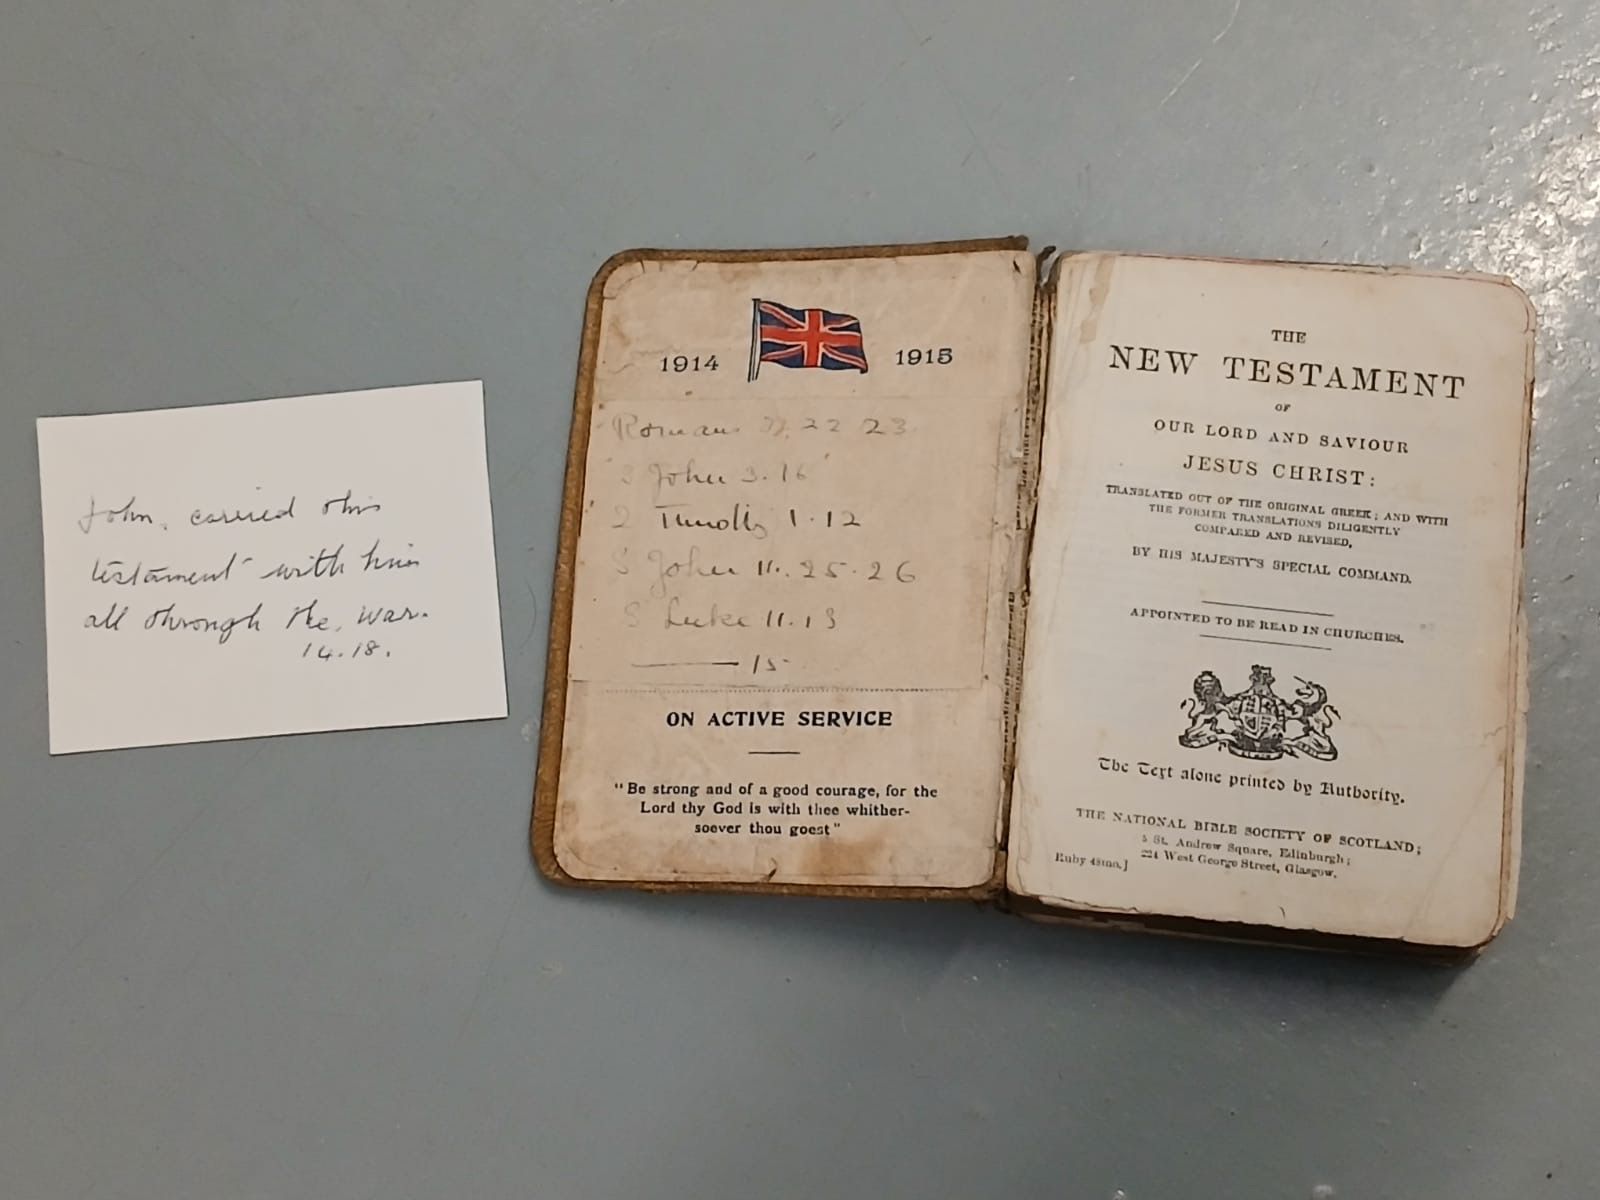 John, carried this
testament with him
all through the, war.
14.18.
1914 1915
Romans 22 23
S John 3.16
2 Timothy 1.12
S John 11.25.26
S Luke 11.13
15
ON ACTIVE SERVICE
"Be strong and of a good courage, for the
Lord thy God is with thee whither-
soever thou goest"
THE
NEW TESTAMENT
OF
OUR LORD AND SAVIOUR
JESUS CHRIST:
TRANSLATED OUT OF THE ORIGINAL GREEK; AND WITH
THE FORMER TRANSLATIONS DILIGENTLY
COMPARED AND REVISED,
BY HIS MAJESTY'S SPECIAL COMMAND.
APPOINTED TO BE READ IN CHURCHES.
The Text alone printed by Authority.
THE NATIONAL BIBLE SOCIETY OF SCOTLAND;
5 St. Andrew Square, Edinburgh;
224 West George Street, Glasgow.
Ruby 48mo.]